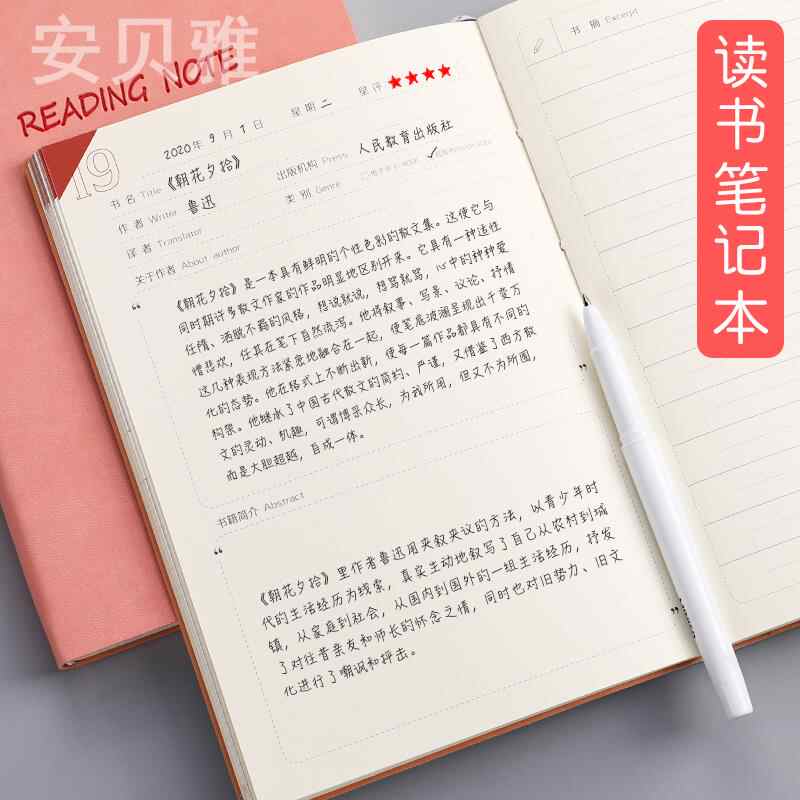 安贝雅
READING NOTE
读书笔记本
19
2020年 9 月 1 日 星期 二 星评 ★★★★
书名 Title 《朝花夕拾》 出版机构 Press 人民教育出版社
作者 Writer 鲁迅 类别 Genre ✓
译者 Translator
关于作者 About author
《朝花夕拾》是一本具有鲜明的个性色彩的散文集。这使它与
同时期许多散文作家的作品明显地区别开来。它具有一种适性
任隋、洒脱不羁的风格，想说就说，想骂就骂，心中的种种爱
憎悲欢，任其在笔下自然流泻。他将叙事、写景、议论、抒情
这几种表现方法紧密地融合在一起，使笔底波澜呈现出千变万
化的态势。他在格式上不断出新，使每一篇作品都具有不同的
构架。他继承了中国古代散文的简约、严谨，又借鉴了西方散
文的灵动、机趣，可谓博采众长，为我所用，但又不为所囿，
而是大胆超越，自成一体。
书籍简介 Abstract
《朝花夕拾》里作者鲁迅用夹叙夹议的方法，以青少年时
代的生活经历为线索，真实生动地叙写了自己从农村到城
镇，从家庭到社会，从国内到国外的一组生活经历，抒发
了对往昔亲友和师长的怀念之情，同时也对旧势力、旧文
化进行了嘲讽和抨击。
书摘 Excerpt